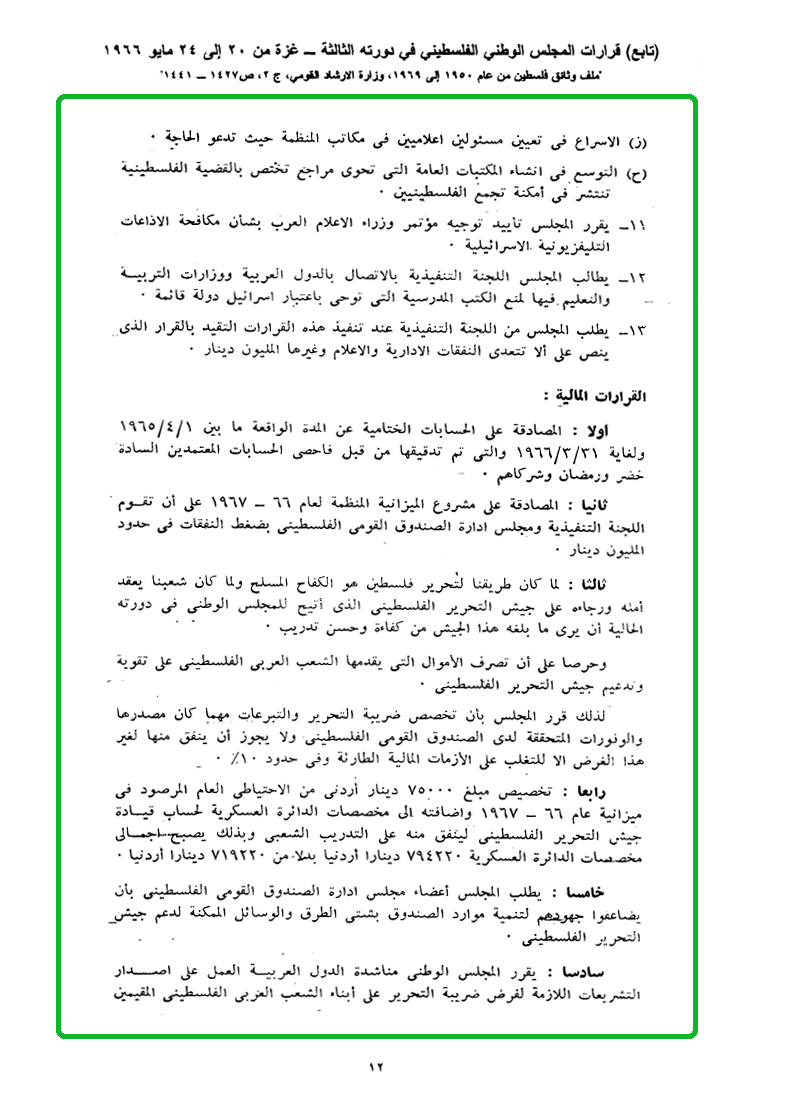 (تابع) قرارات المجلس الوطني الفلسطيني في دورته الثالثة ــ غزة من ٢٠ إلى ٢٤ مايو ١٩٦٦
"ملف وثائق فلسطين من عام ١٩٥٠ إلى ١٩٦٩، وزارة الارشاد القومي، ج ٢، ص١٤٢٧ ــ ١٤٤١"
(ز) الاسراع فى تعيين مسئولين اعلاميين فى مكاتب المنظمة حيث تدعو الحاجة ٠
(ح) التوسع فى انشاء المكتبات العامة التى تحوى مراجع تختص بالقضية الفلسطينية
تنتشر فى أمكنة تجمع الفلسطينيين ٠
١١ــ يقرر المجلس تأييد توجيه مؤتمر وزراء الاعلام العرب بشأن مكافحة الاذاعات
التليفزيونية الاسرائيلية ٠
١٢ــ يطالب المجلس اللجنة التنفيذية بالاتصال بالدول العربية ووزارات التربيــة
والتعليم فيها لمنع الكتب المدرسية التى توحى باعتبار اسرائيل دولة قائمة ٠
١٣ــ يطلب المجلس من اللجنة التنفيذية عند تنفيذ هذه القرارات التقيد بالقرار الذى
ينص على ألا تتعدى النفقات الادارية والاعلام وغيرها المليون دينار ٠
القرارات المالية :
اولا : المصادقة على الحسابات الختامية عن المدة الواقعة ما بين ١٩٦٥/٤/١
ولغاية ١٩٦٦/٣/٣١ والتى تم تدقيقها من قبل فاحصى الحسابات المعتمدين السادة
خضر ورمضان وشركاهم ٠
ثانيا : المصادقة على مشروع الميزانية المنظمة لعام ٦٦ ــ ١٩٦٧ على أن تقــوم
اللجنة التنفيذية ومجلس ادارة الصندوق القومى الفلسطينى بضغط النفقات فى حدود
المليون دينار ٠
ثالثا : لما كان طريقنا لتحرير فلسطين هو الكفاح المسلح ولما كان شعبنا يعقد
أمله ورجاءه على جيش التحرير الفلسطينى الذى أتيح للمجلس الوطنى فى دورته
الحالية أن يرى ما بلغه هذا الجيش من كفاءة وحسن تدريب ٠
وحرصا على أن تصرف الأموال التى يقدمها الشعب العربى الفلسطينى على تقوية
وتدعيم جيش التحرير الفلسطينى ٠
لذلك قرر المجلس بأن تخصص ضريبة التحرير والتبرعات مهما كان مصدرها
والوفورات المتحققة لدى الصندوق القومى الفلسطينى ولا يجوز أن ينفق منها لغير
هذا الغرض الا للتغلب على الأزمات المالية الطارئة وفى حدود ١٠٪ ٠
رابعا : تخصيص مبلغ ٧٥٠٠٠ دينار أردنى من الاحتياطى العام المرصود فى
ميزانية عام ٦٦ ــ ١٩٦٧ واضافته الى مخصصات الدائرة العسكرية لحساب قيــادة
جيش التحرير الفلسطينى لينفق منه على التدريب الشعبى وبذلك يصبح اجمــالى
مخصصات الدائرة العسكرية ٧٩٤٢٢٠ دينارا أردنيا بدلا من ٧١٩٢٢٠ دينارا أردنيا ٠
خامسا : يطلب المجلس أعضاء مجلس ادارة الصندوق القومى الفلسطينى بأن
يضاعفوا جهودهم لتنمية موارد الصندوق بشتى الطرق والوسائل الممكنة لدعم جيش
التحرير الفلسطينى ٠
سادسا : يقرر المجلس الوطنى مناشدة الدول العربيــة العمل على اصــدار
التشريعات اللازمة لفرض ضريبة التحرير على أبناء الشعب العربى الفلسطينى المقيمين
١٢